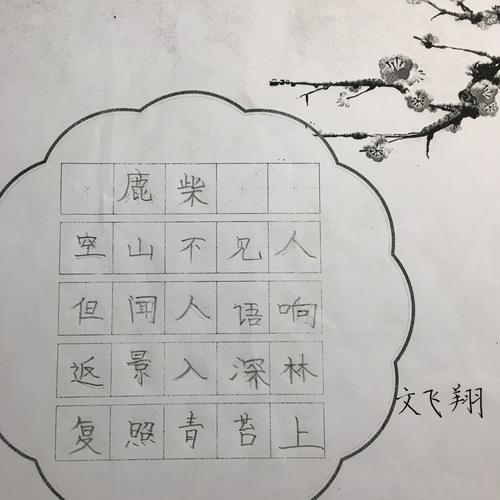 鹿柴
空山不见人
但闻人语响
返景入深林
复照青苔上
文飞翔